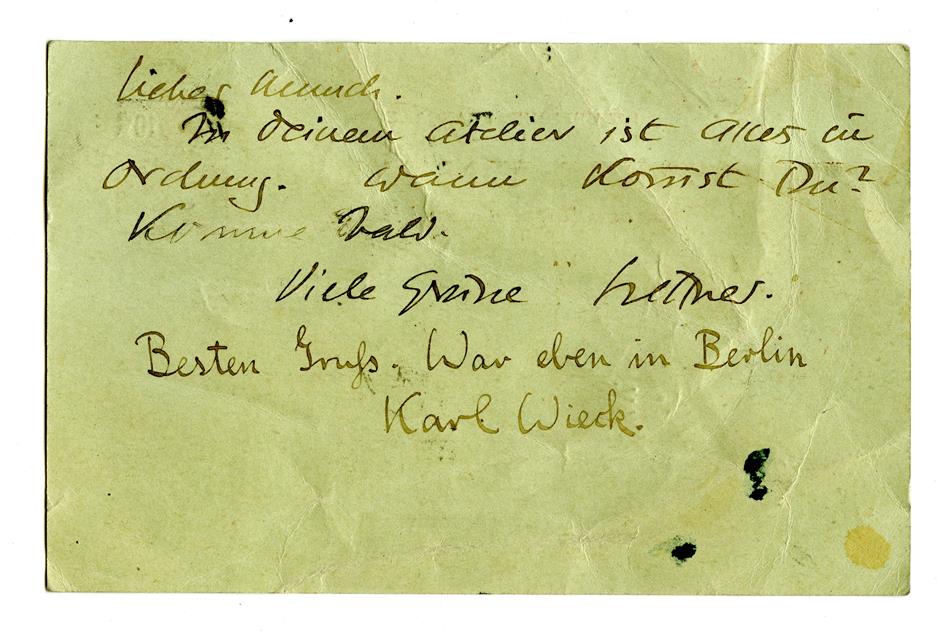 Lieber Munch.
In deinem Atelier ist Alles in
Ordnung. Wann kommst Du?
Komme bald.
Viele Grüße
Besten Gruß. War eben in Berlin
Karl Wieck.